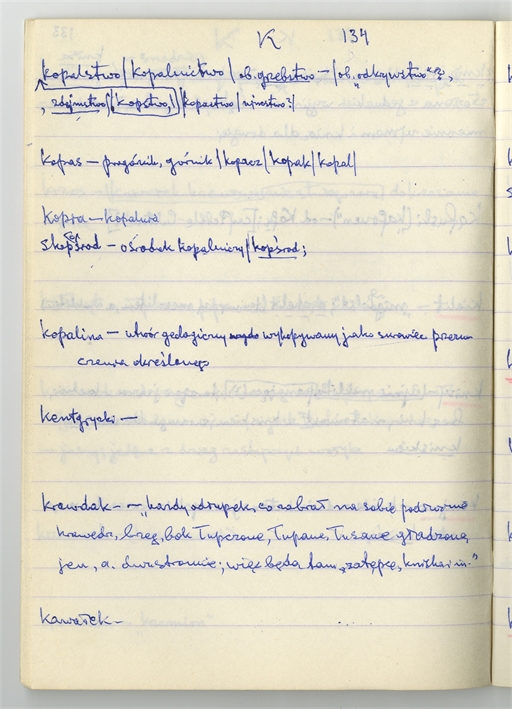 K 134
kopalstwo | kopalnictwo | ob. grebstwo — | ob. „odkrywstwo" ?,
, zdejmstwo | kopstwo, | kopactwo |
kopas — pragórnik, górnik | kopacz | kopak | kopal |
kopra — kopalnia
skopśrod — ośrodek kopalniczy | kopśrod ;
kopalina — utwór geologiczny wykopywany jako surowiec przezna
czenia określonego
kentgrycki —
krawdak — — „każdy odłupek, co zabrał na sobie podszwowe
krawędz, brzeg, bok łupczone, łupane, gładzone,
jedn. a. dwustronnie; więc będą tam „zatępce, i in."
kawałek —